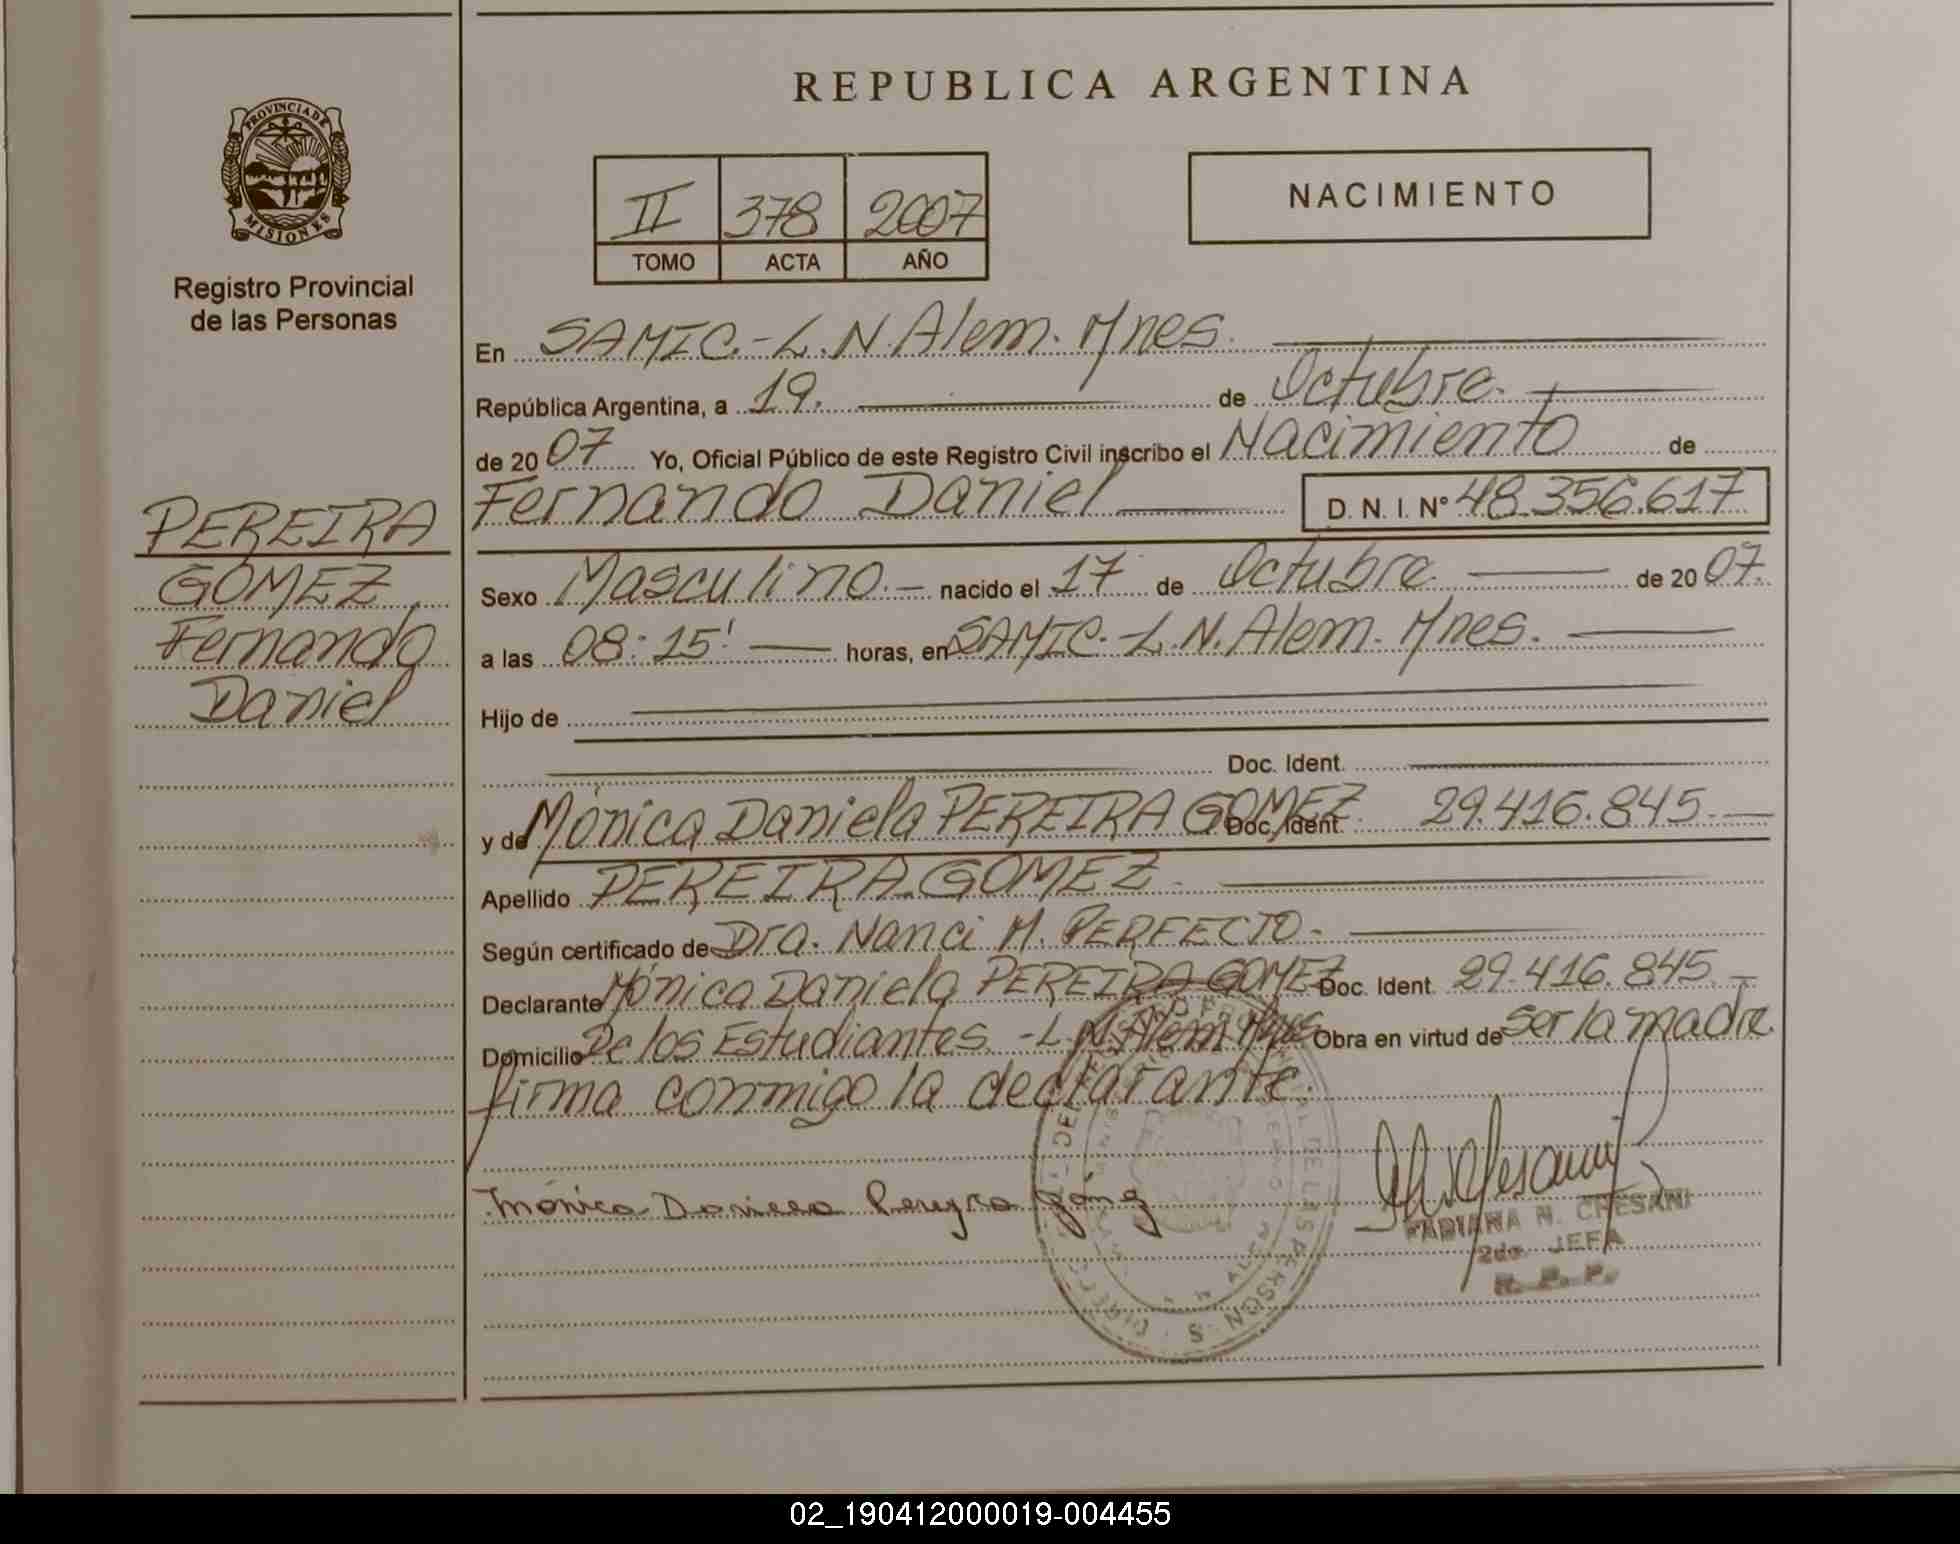 REPUBLICA ARGENTINA
PROVINCIA DE MISIONES
Registro Provincial
de las Personas
II 378 2007
TOMO ACTA AÑO
NACIMIENTO
En SAMIC.-L.N.Alem. Mnes.
República Argentina, a 19. de Octubre.
de 20 07 Yo, Oficial Público de este Registro Civil inscribo el Nacimiento de
Fernando Daniel D. N. I. Nº 48.356.617
PEREIRA
GOMEZ
Fernando
Daniel
Sexo Masculino.- nacido el 17 de Octubre de 20 07.
a las 08:15' horas, en SAMIC.-L.N.Alem. Mnes.
Hijo de
Doc. Ident.
y de Mónica Daniela PEREIRA GOMEZ Doc. Ident. 29.416.845.-
Apellido PEREIRA GOMEZ
Según certificado de Dra. Nanci M. PERFECTO.
Declarante Mónica Daniela PEREIRA GOMEZ Doc. Ident. 29.416.845.-
Domicilio De los Estudiantes -L.N.Alem Mnes Obra en virtud de ser la madre
firma conmigo la declarante.
Mónica Daniela Pereyra
FABIANA N. CRESANI
2da. JEFA
R. P. P.
02_190412000019-004455